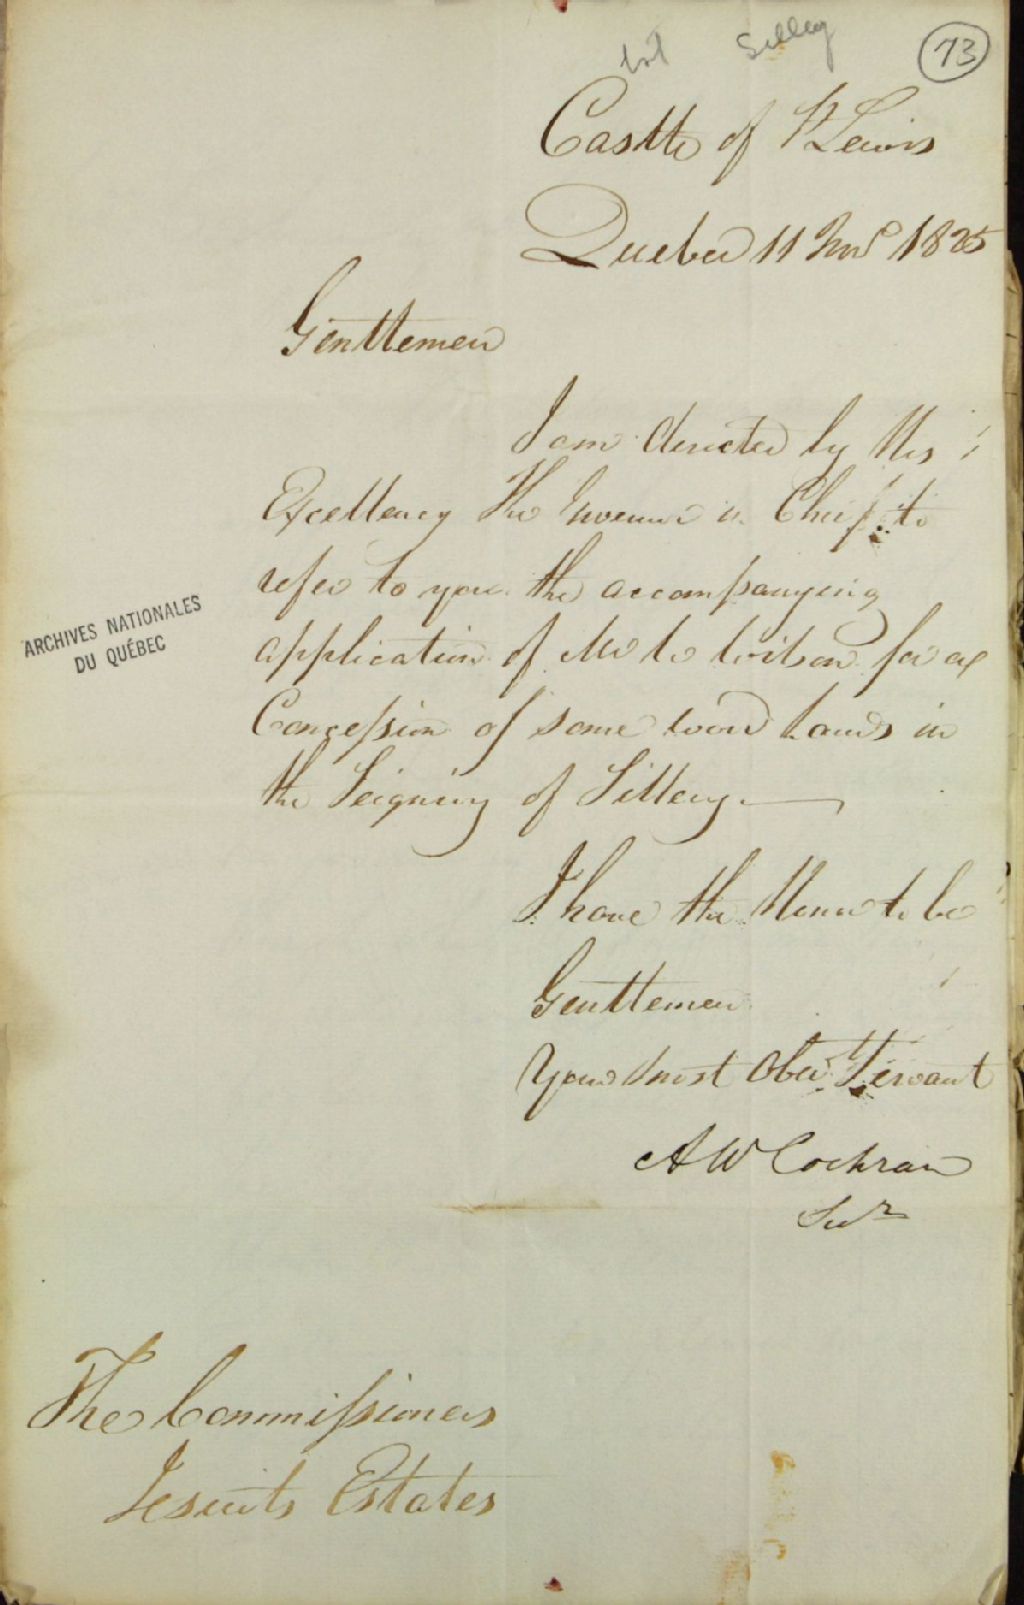 Sillery
73
Castle of St Lewis
Quebec 11 Novr 1825
Gentlemen
I am directed by His
Excellency The Governor in Chief to
refer to you the accompanying
application of Mr Wilson for a
Concession of some wood Lands in
the Seigniory of Sillery.
I have the Honor to be
Gentlemen
Your most Obedt Servant
A W Cochran
Secr
The Commissioners
Jesuits Estates
ARCHIVES NATIONALES
DU QUÉBEC